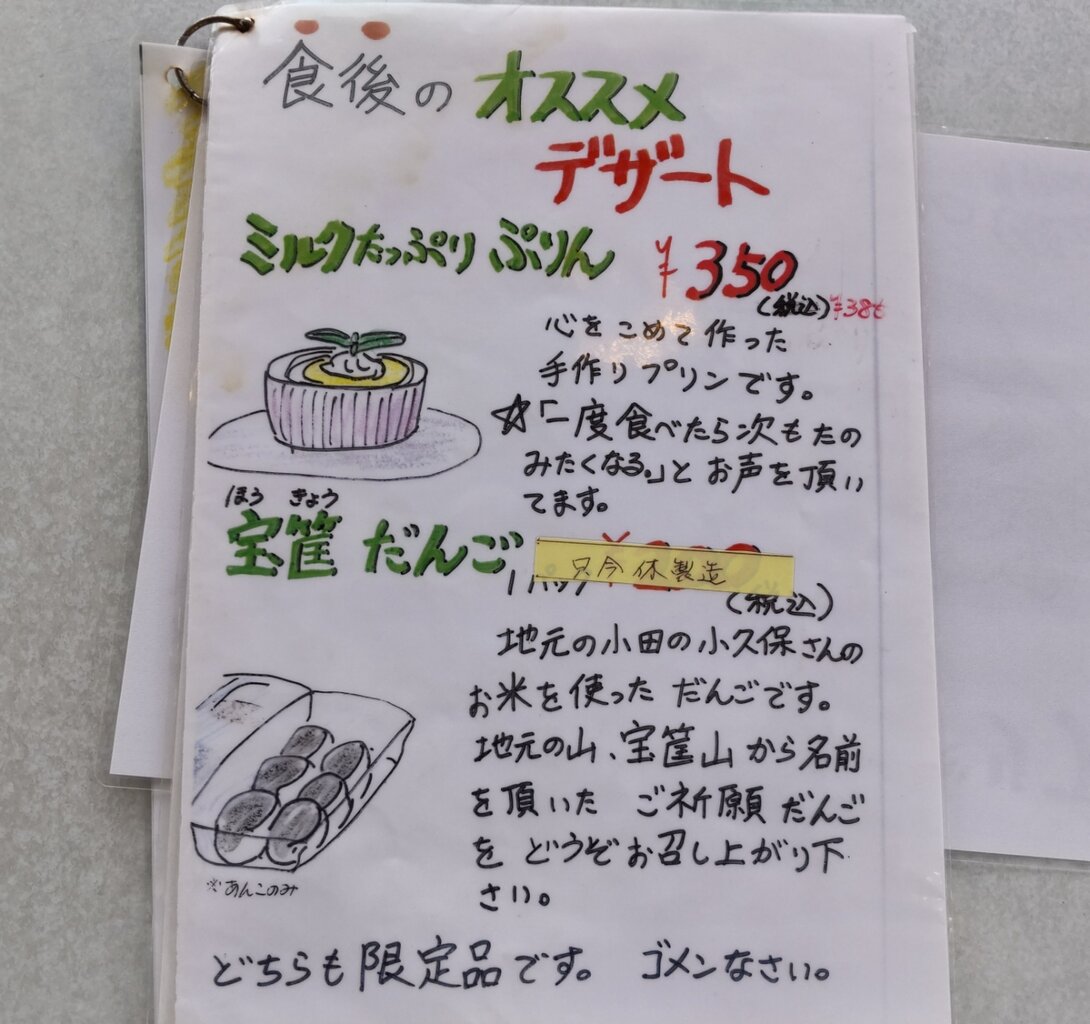 食後の オススメ
デザート
ミルクたっぷり ぷりん ¥350
(税込)
心をこめて作った
手作りプリンです。
☆「一度食べたら次もたの
みたくなる。」とお声を頂い
てます。
ほう きょう
宝筐 だんご
只今休製造
1パック
(税込)
地元の小田の小久保さんの
お米を使っただんごです。
地元の山、宝筐山から名前
を頂いた ご祈願だんご
を どうぞお召し上がり下
さい。
※あんこのみ
どちらも限定品です。 ゴメンなさい。